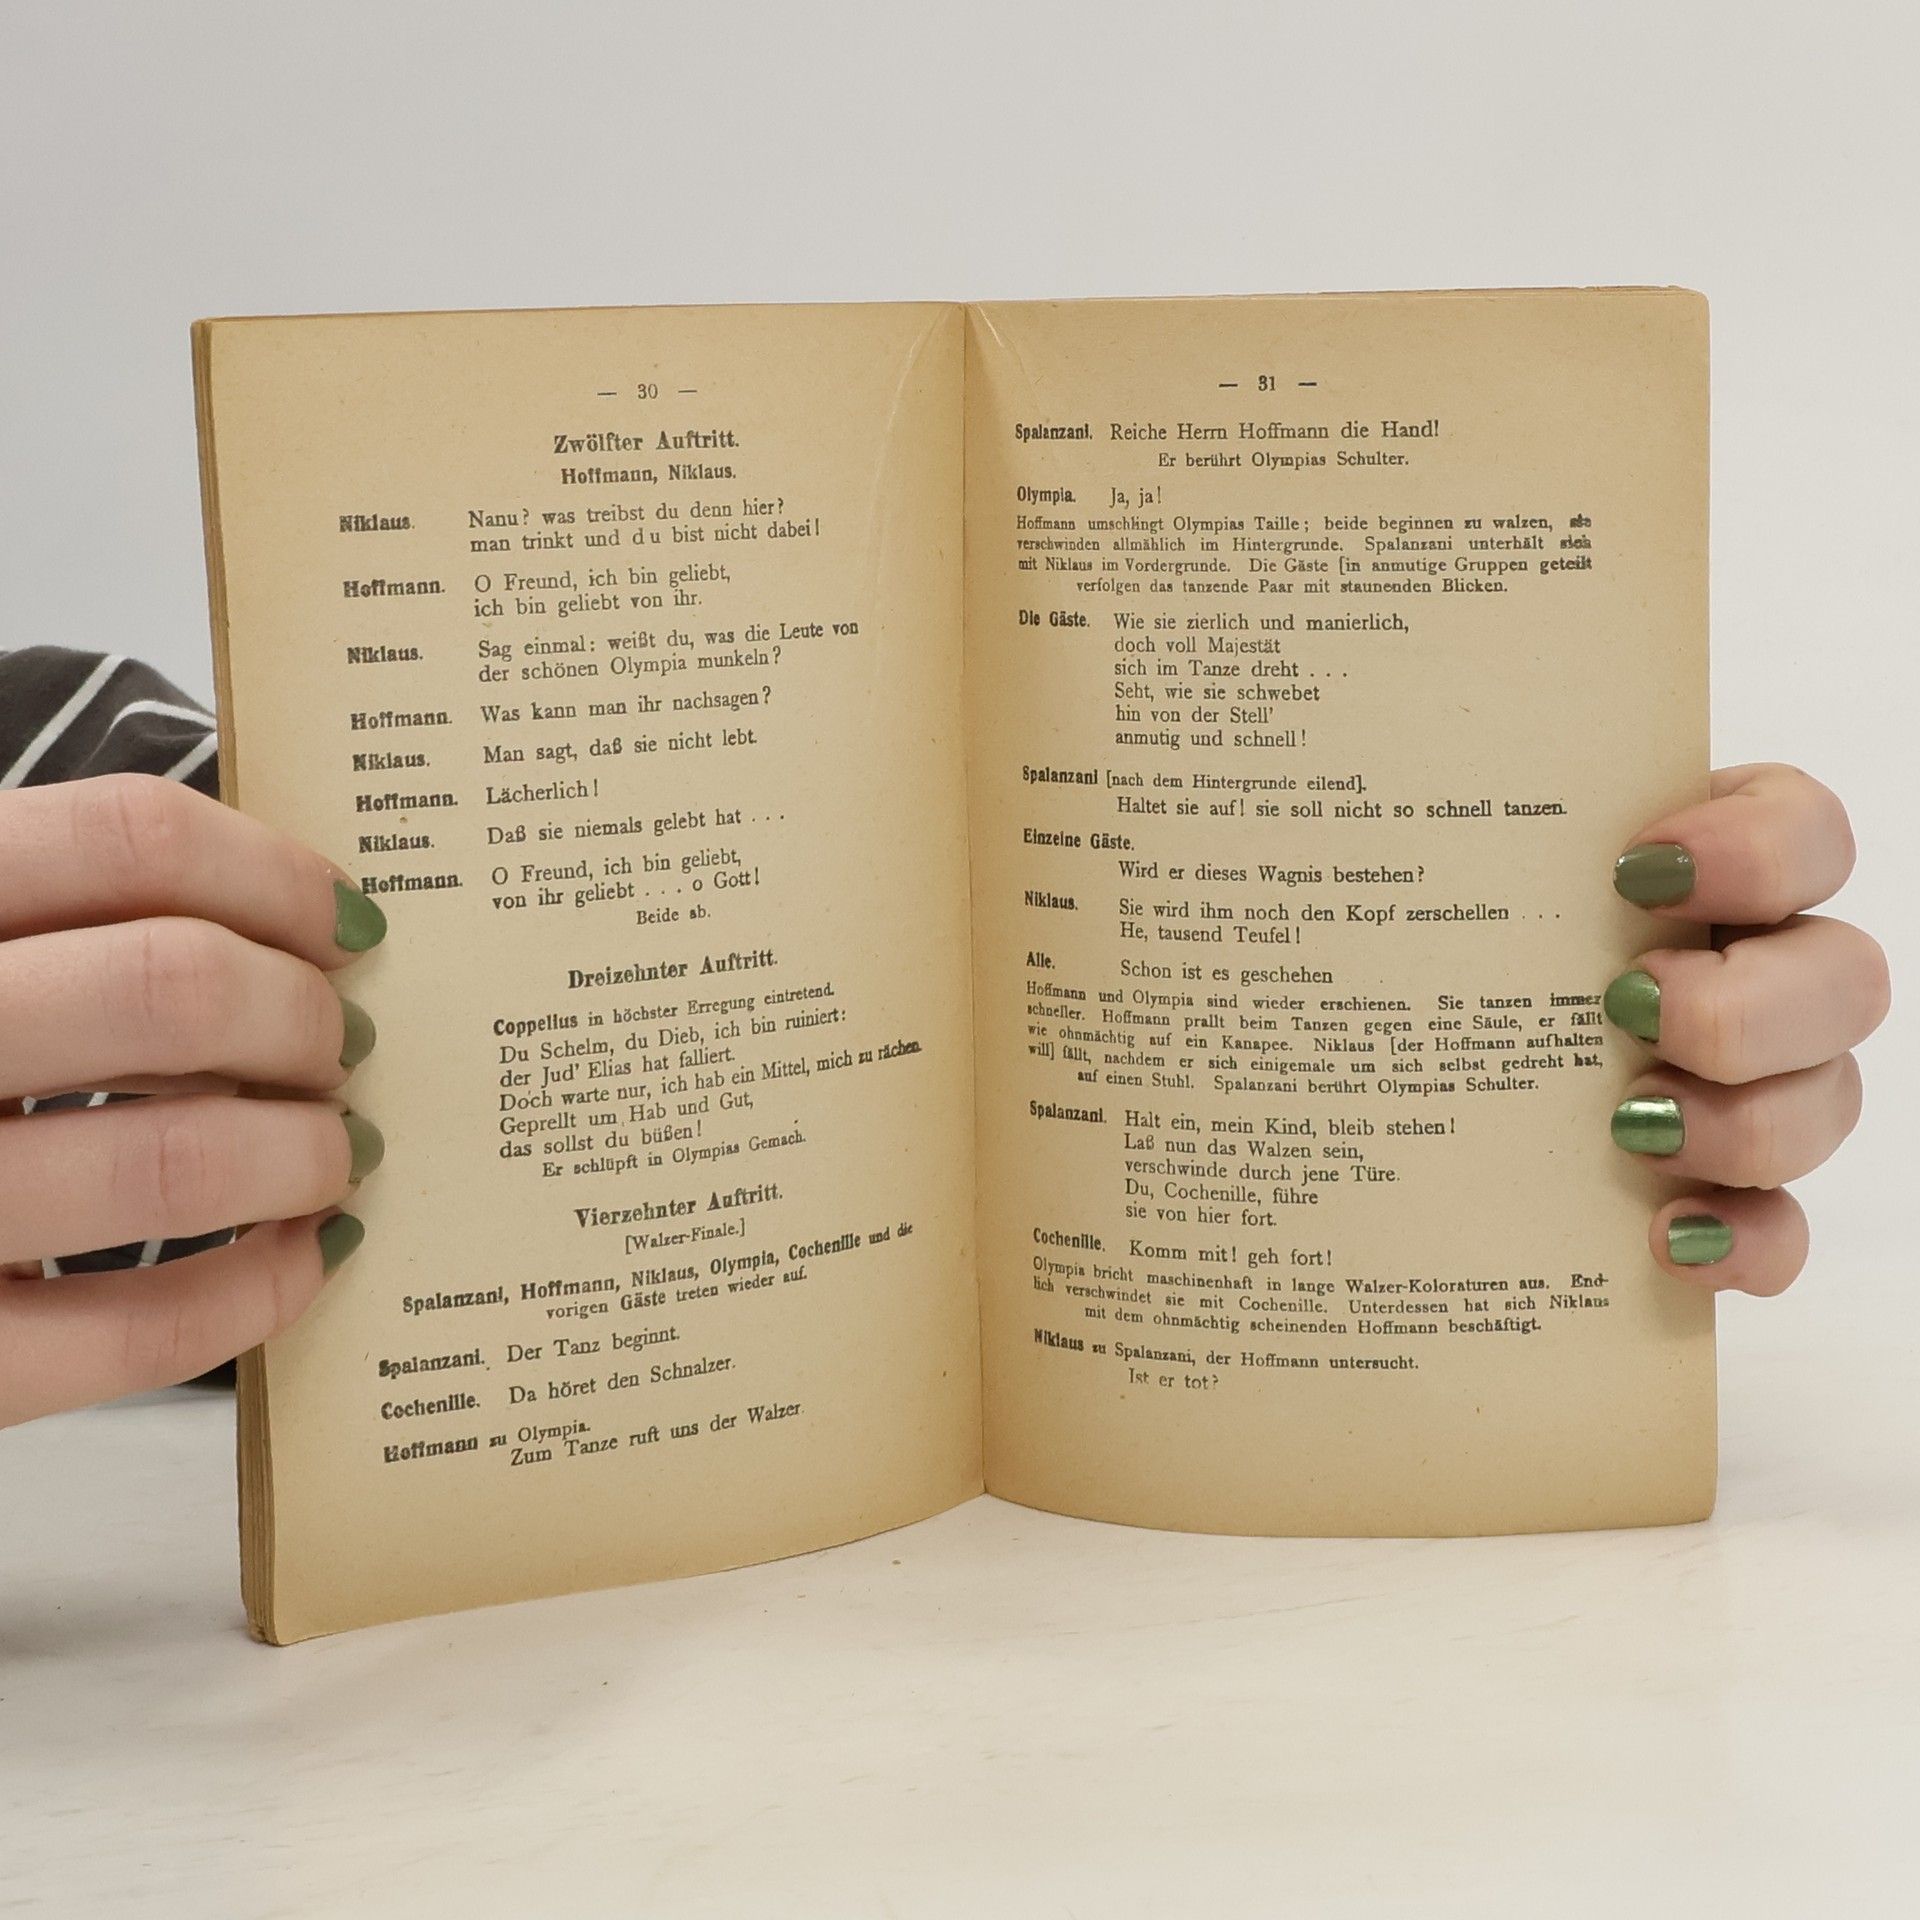 — 30 —
Zwölfter Auftritt.
Hoffmann, Niklaus.
Niklaus. Nanu? was treibst du denn hier?
man trinkt und du bist nicht dabei!
Hoffmann. O Freund, ich bin geliebt,
ich bin geliebt von ihr.
Niklaus. Sag einmal: weißt du, was die Leute von
der schönen Olympia munkeln?
Hoffmann. Was kann man ihr nachsagen?
Niklaus. Man sagt, daß sie nicht lebt.
Hoffmann. Lächerlich!
Niklaus. Daß sie niemals gelebt hat . . .
Hoffmann. O Freund, ich bin geliebt,
von ihr geliebt . . . o Gott!
Beide ab.
Dreizehnter Auftritt.
Coppelius in höchster Erregung eintretend.
Du Schelm, du Dieb, ich bin ruiniert:
der Jud' Elias hat falliert.
Doch warte nur, ich hab ein Mittel, mich zu rächen.
Geprellt um Hab und Gut,
das sollst du büßen!
Er schlüpft in Olympias Gemach.
Vierzehnter Auftritt.
[Walzer-Finale.]
Spalanzani, Hoffmann, Niklaus, Olympia, Cochenille und die
vorigen Gäste treten wieder auf.
Spalanzani. Der Tanz beginnt.
Cochenille. Da höret den Schnalzer.
Hoffmann zu Olympia.
Zum Tanze ruft uns der Walzer.
— 31 —
Spalanzani. Reiche Herrn Hoffmann die Hand!
Er berührt Olympias Schulter.
Olympia. Ja, ja!
Hoffmann umschlingt Olympias Taille; beide beginnen zu walzen, sie
verschwinden allmählich im Hintergrunde. Spalanzani unterhält sich
mit Niklaus im Vordergrunde. Die Gäste [in anmutige Gruppen geteilt
verfolgen das tanzende Paar mit staunenden Blicken.
Die Gäste. Wie sie zierlich und manierlich,
doch voll Majestät
sich im Tanze dreht . . .
Seht, wie sie schwebet
hin von der Stell'
anmutig und schnell!
Spalanzani [nach dem Hintergrunde eilend].
Haltet sie auf! sie soll nicht so schnell tanzen.
Einzelne Gäste.
Wird er dieses Wagnis bestehen?
Niklaus. Sie wird ihm noch den Kopf zerschellen . . .
He, tausend Teufel!
Alle. Schon ist es geschehen
Hoffmann und Olympia sind wieder erschienen. Sie tanzen immer
schneller. Hoffmann prallt beim Tanzen gegen eine Säule, er fällt
wie ohnmächtig auf ein Kanapee. Niklaus [der Hoffmann aufhalten
will] fällt, nachdem er sich einigemale um sich selbst gedreht hat,
auf einen Stuhl. Spalanzani berührt Olympias Schulter.
Spalanzani. Halt ein, mein Kind, bleib stehen!
Laß nun das Walzen sein,
verschwinde durch jene Türe.
Du, Cochenille, führe
sie von hier fort.
Cochenille. Komm mit! geh fort!
Olympia bricht maschinenhaft in lange Walzer-Koloraturen aus. End-
lich verschwindet sie mit Cochenille. Unterdessen hat sich Niklaus
mit dem ohnmächtig scheinenden Hoffmann beschäftigt.
Niklaus zu Spalanzani, der Hoffmann untersucht.
Ist er tot?